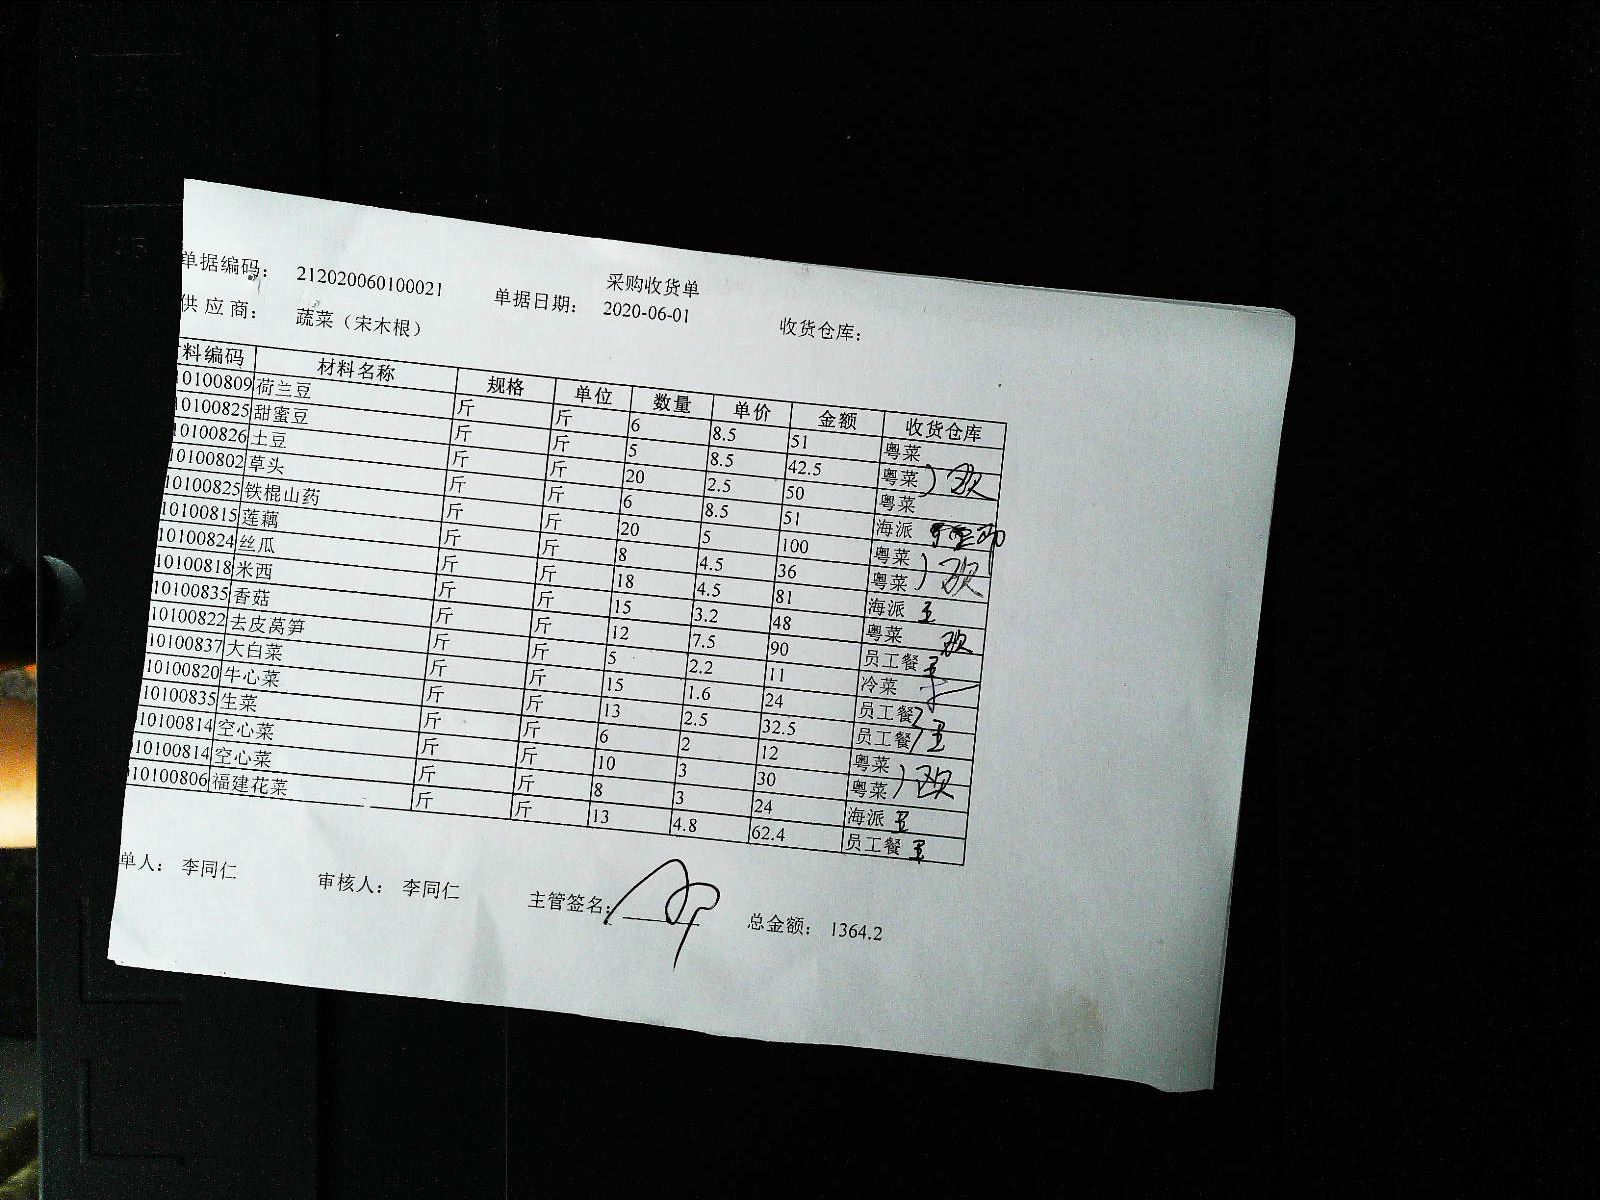 采购收货单
单据编码: 212020060100021 单据日期: 2020-06-01 收货仓库:
供应商: 蔬菜（宋木根）
料编码 材料名称 规格 单位 数量 单价 金额 收货仓库
10100809 荷兰豆 斤 斤 6 8.5 51 粤菜
10100825 甜蜜豆 斤 斤 5 8.5 42.5 粤菜
10100826 土豆 斤 斤 20 2.5 50 粤菜
10100802 草头 斤 斤 6 8.5 51 海派
10100825 铁棍山药 斤 斤 20 5 100 粤菜
10100815 莲藕 斤 斤 8 4.5 36 粤菜
10100824 丝瓜 斤 斤 18 4.5 81 海派
10100818 米西 斤 斤 15 3.2 48 粤菜
10100835 香菇 斤 斤 12 7.5 90 员工餐
10100822 去皮莴笋 斤 斤 5 2.2 11 冷菜
10100837 大白菜 斤 斤 15 1.6 24 员工餐
10100820 牛心菜 斤 斤 13 2.5 32.5 员工餐
10100835 生菜 斤 斤 6 2 12 粤菜
10100814 空心菜 斤 斤 10 3 30 粤菜
10100814 空心菜 斤 斤 8 3 24 海派
10100806 福建花菜 斤 斤 13 4.8 62.4 员工餐
单人: 李同仁 审核人: 李同仁 主管签名: 总金额: 1364.2